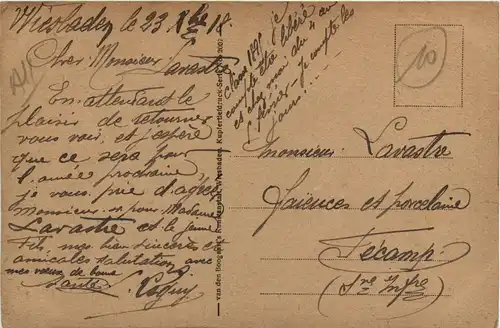 Wiesbaden le 23 Xbre 18.
Cher Monsieur Lavastre
En attendant le
plaisir de retourner
vous voir, et j'espère
que ce sera pour
l'année prochaine
je vous prie d'agréer
Monsieur pour Madame
Lavastre et le jeune
Fils, mes bien sincères et
amicales salutations avec
mes vœux de bonne
santé.
Classe 1891 je
compte être libéré
et chez moi du 4 au
février je compte les
jours!...
van den Hoogen Wiesbaden. Kupfertiefdruck-Serie
10
Monsieur Lavastre
Faïences et porcelaine
Fécamp
(Sne Infre)